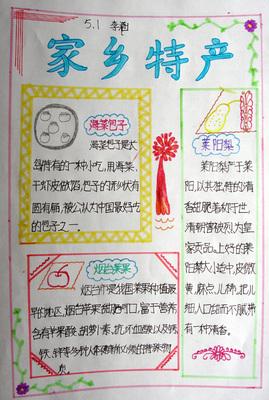 5.1 李
家乡特产
海菜包子
海菜包子是大
岛特有的一种小吃,用海菜、
干虾皮做馅,包子的形状有
圆有扁,被公认为中国最好吃
的包子之一.
莱阳梨
莱阳梨产于莱
阳,以其独特的清
香甜脆著称于世,
清朝曾被列为皇
家贡品。上好的莱
阳梨大小适中,皮微
黄,麻点儿稀,把儿
细,入口甜而不腻,带
有一种清香。
烟台苹果
烟台市是我国苹果种植最
早的地区,烟台苹果甜脆可口,富于营养,
含有苹果酸、胡萝卜素、抗坏血酸以及钙、
铁、锌等多种人体健康所必须的营养物
质.